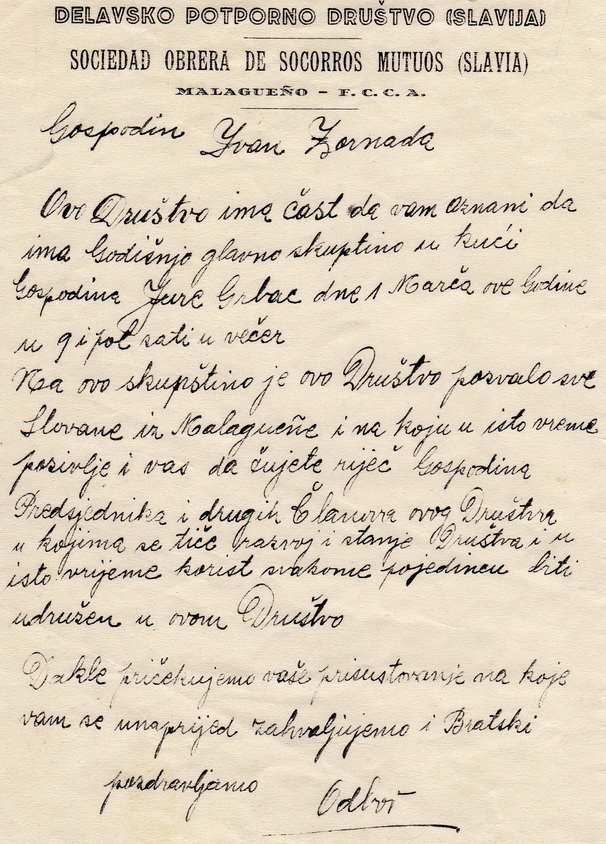 DELAVSKO POTPORNO DRUŠTVO (SLAVIJA)
SOCIEDAD OBRERA DE SOCORROS MUTUOS (SLAVIA)
MALAGUEÑO - F.C.C.A.
Gospodin Yvan Zornada
Ovo Društvo ima čast da vam oznani da
ima Godišnjo glavno skuptino u kući
Gospodina Jure Grbac dne 1 Marča ove Godine
u 9 i pol sati u večer
Na ovo skupštino je ovo Društvo pozvalo sve
Slovane iz Malagueñe i na koju u isto vreme
pozivlje i vas da čujete riječ Gospodina
Predsjednika i drugih Članova ovog Društva
u kojima se tiče razvoj i stanje Društva i u
isto vrijeme korist svakome pojedincu biti
udružen u ovom Društvo
Dakle pričekujemo vaše prisustovanje na koje
vam se unaprijed zahvaljujemo i Bratski
pozdravljamo Odbor